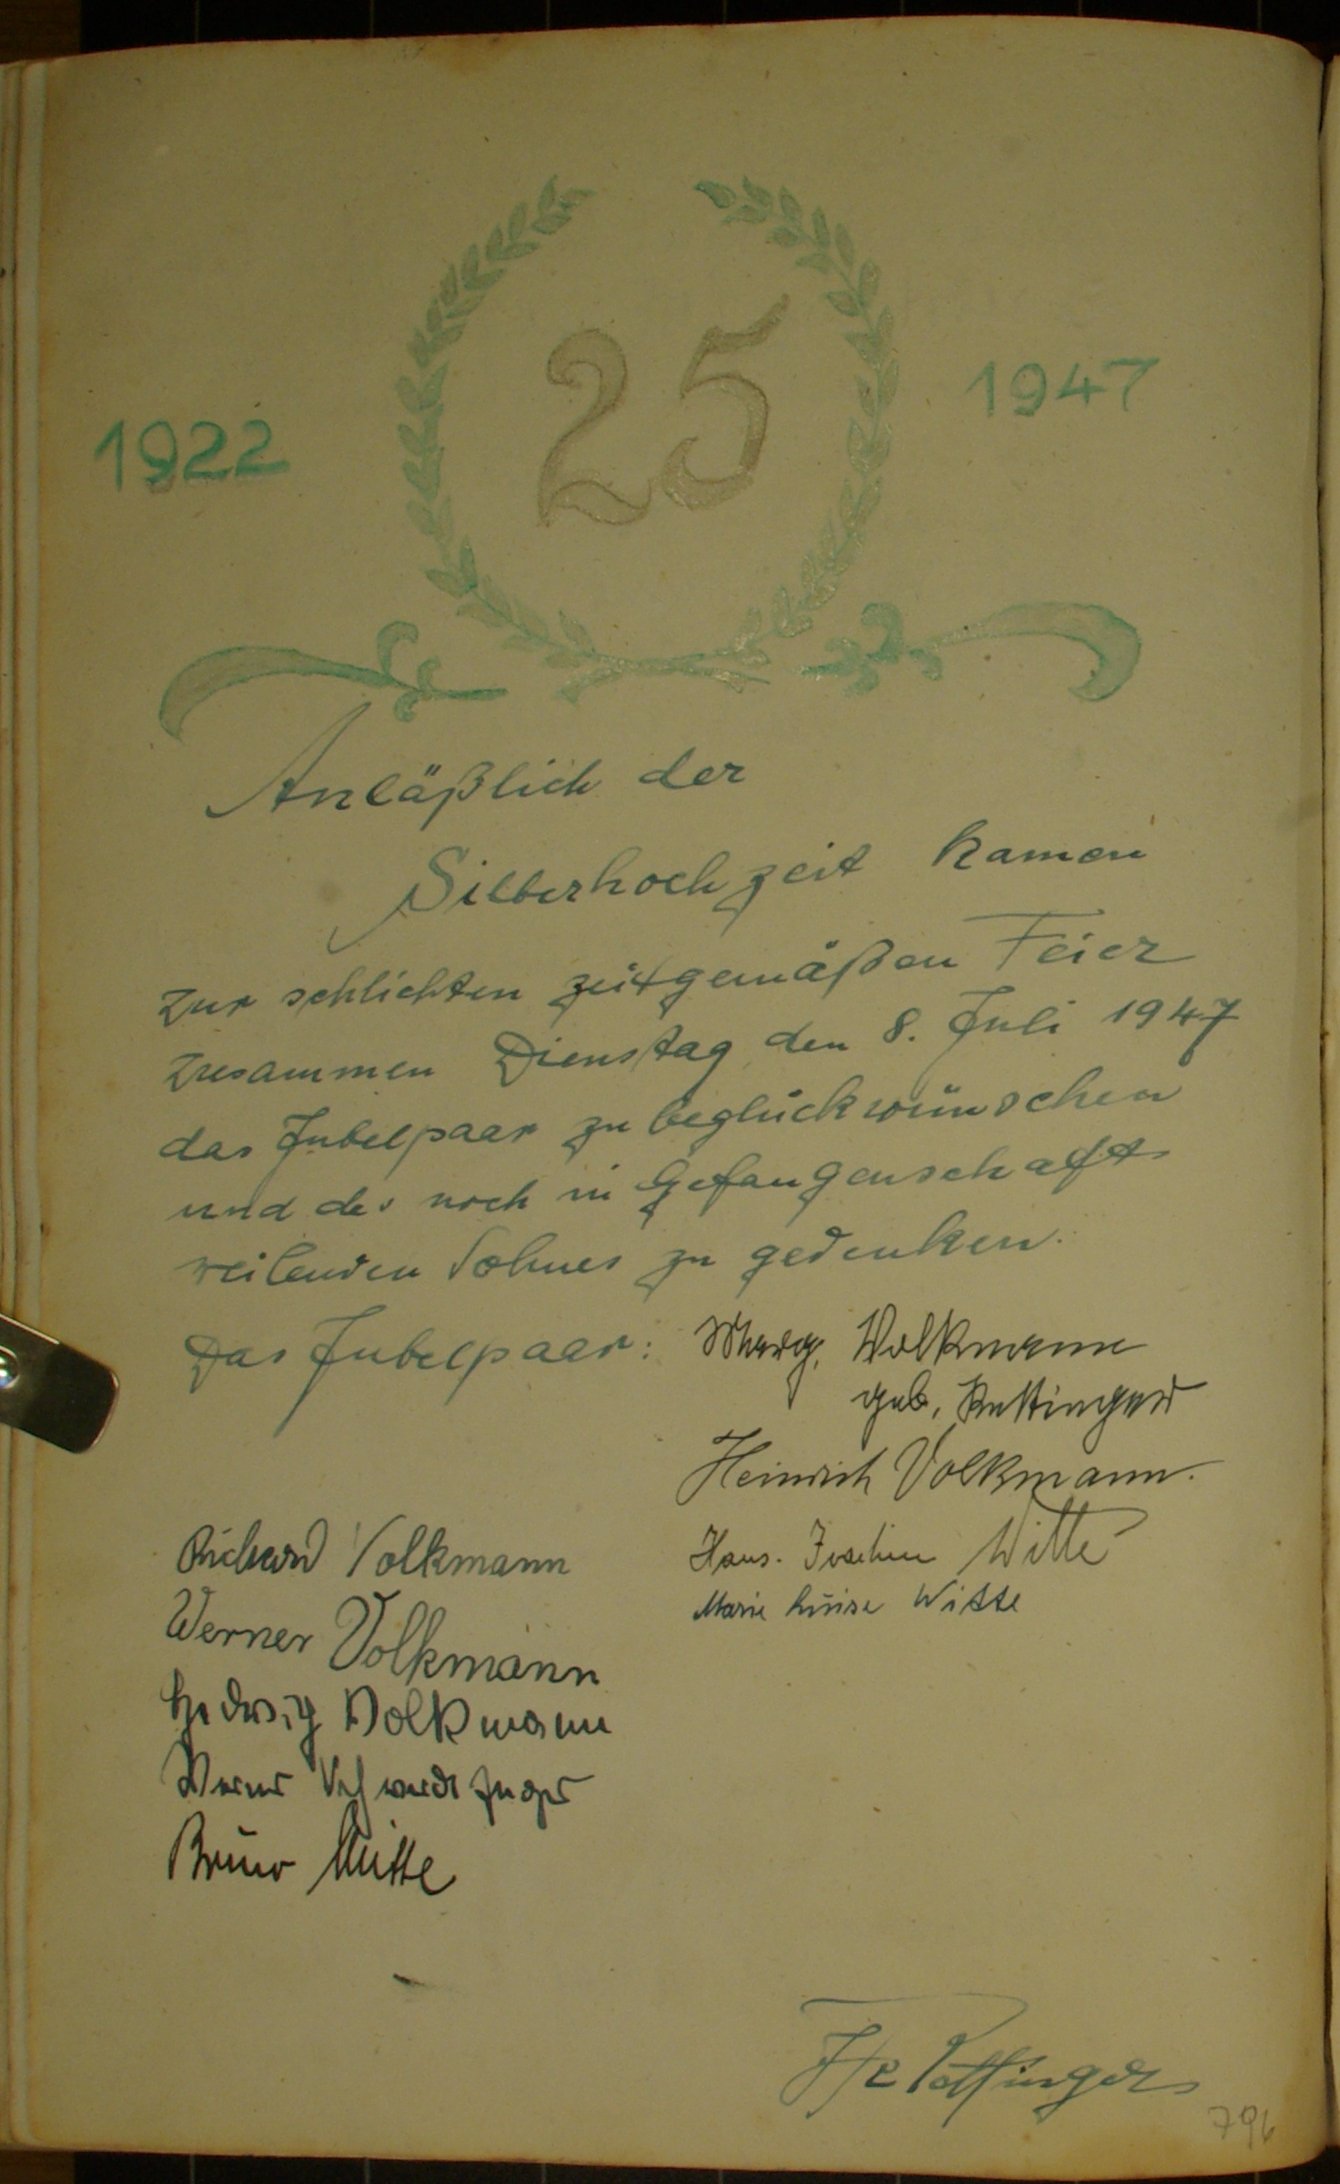 25
1922
1947
Anläßlich der
Silberhochzeit kamen
zur schlichten zeitgemäßen Feier
zusammen Dienstag den 8. Juli 1947
das Jubelpaar zu beglückwünschen
und des noch in Gefangenschaft
weilenden Sohnes zu gedenken.
Das Jubelpaar: Marg. Volkmann
geb.
Heinrich Volkmann.
Richard Volkmann
Werner Volkmann
Hedwig Volkmann
Werner
Bruno Witte
Hans. Joachim Witte
Marie Luise Witte